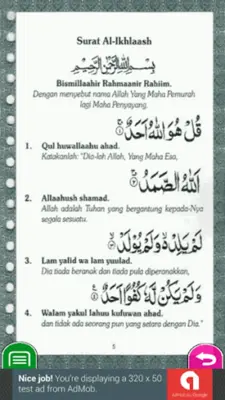 Surat Al-Ikhlaash
بِسْمِ اللّٰهِ الرَّحْمٰنِ الرَّحِيْمِ
Bismillaahir Rahmaanir Rahiim.
Dengan menyebut nama Allah Yang Maha Pemurah
lagi Maha Penyayang.
قُلْ هُوَ اللّٰهُ اَحَدٌ ۝١
1. Qul huwallaahu ahad.
Katakanlah: "Dia-lah Allah, Yang Maha Esa,
اَللّٰهُ الصَّمَدُ ۝٢
2. Allaahush shamad.
Allah adalah Tuhan yang bergantung kepada-Nya
segala sesuatu.
لَمْ يَلِدْ ۙ وَلَمْ يُوْلَدْ ۝٣
3. Lam yalid wa lam yuulad.
Dia tiada beranak dan tiada pula diperanakkan,
وَلَمْ يَكُنْ لَّهُ كُفُوًا اَحَدٌ ۝٤
4. Walam yakul lahuu kufuwan ahad.
dan tidak ada seorang pun yang setara dengan Dia."
5
Nice job! You're displaying a 320 x 50
test ad from AdMob.
AdMob by Google